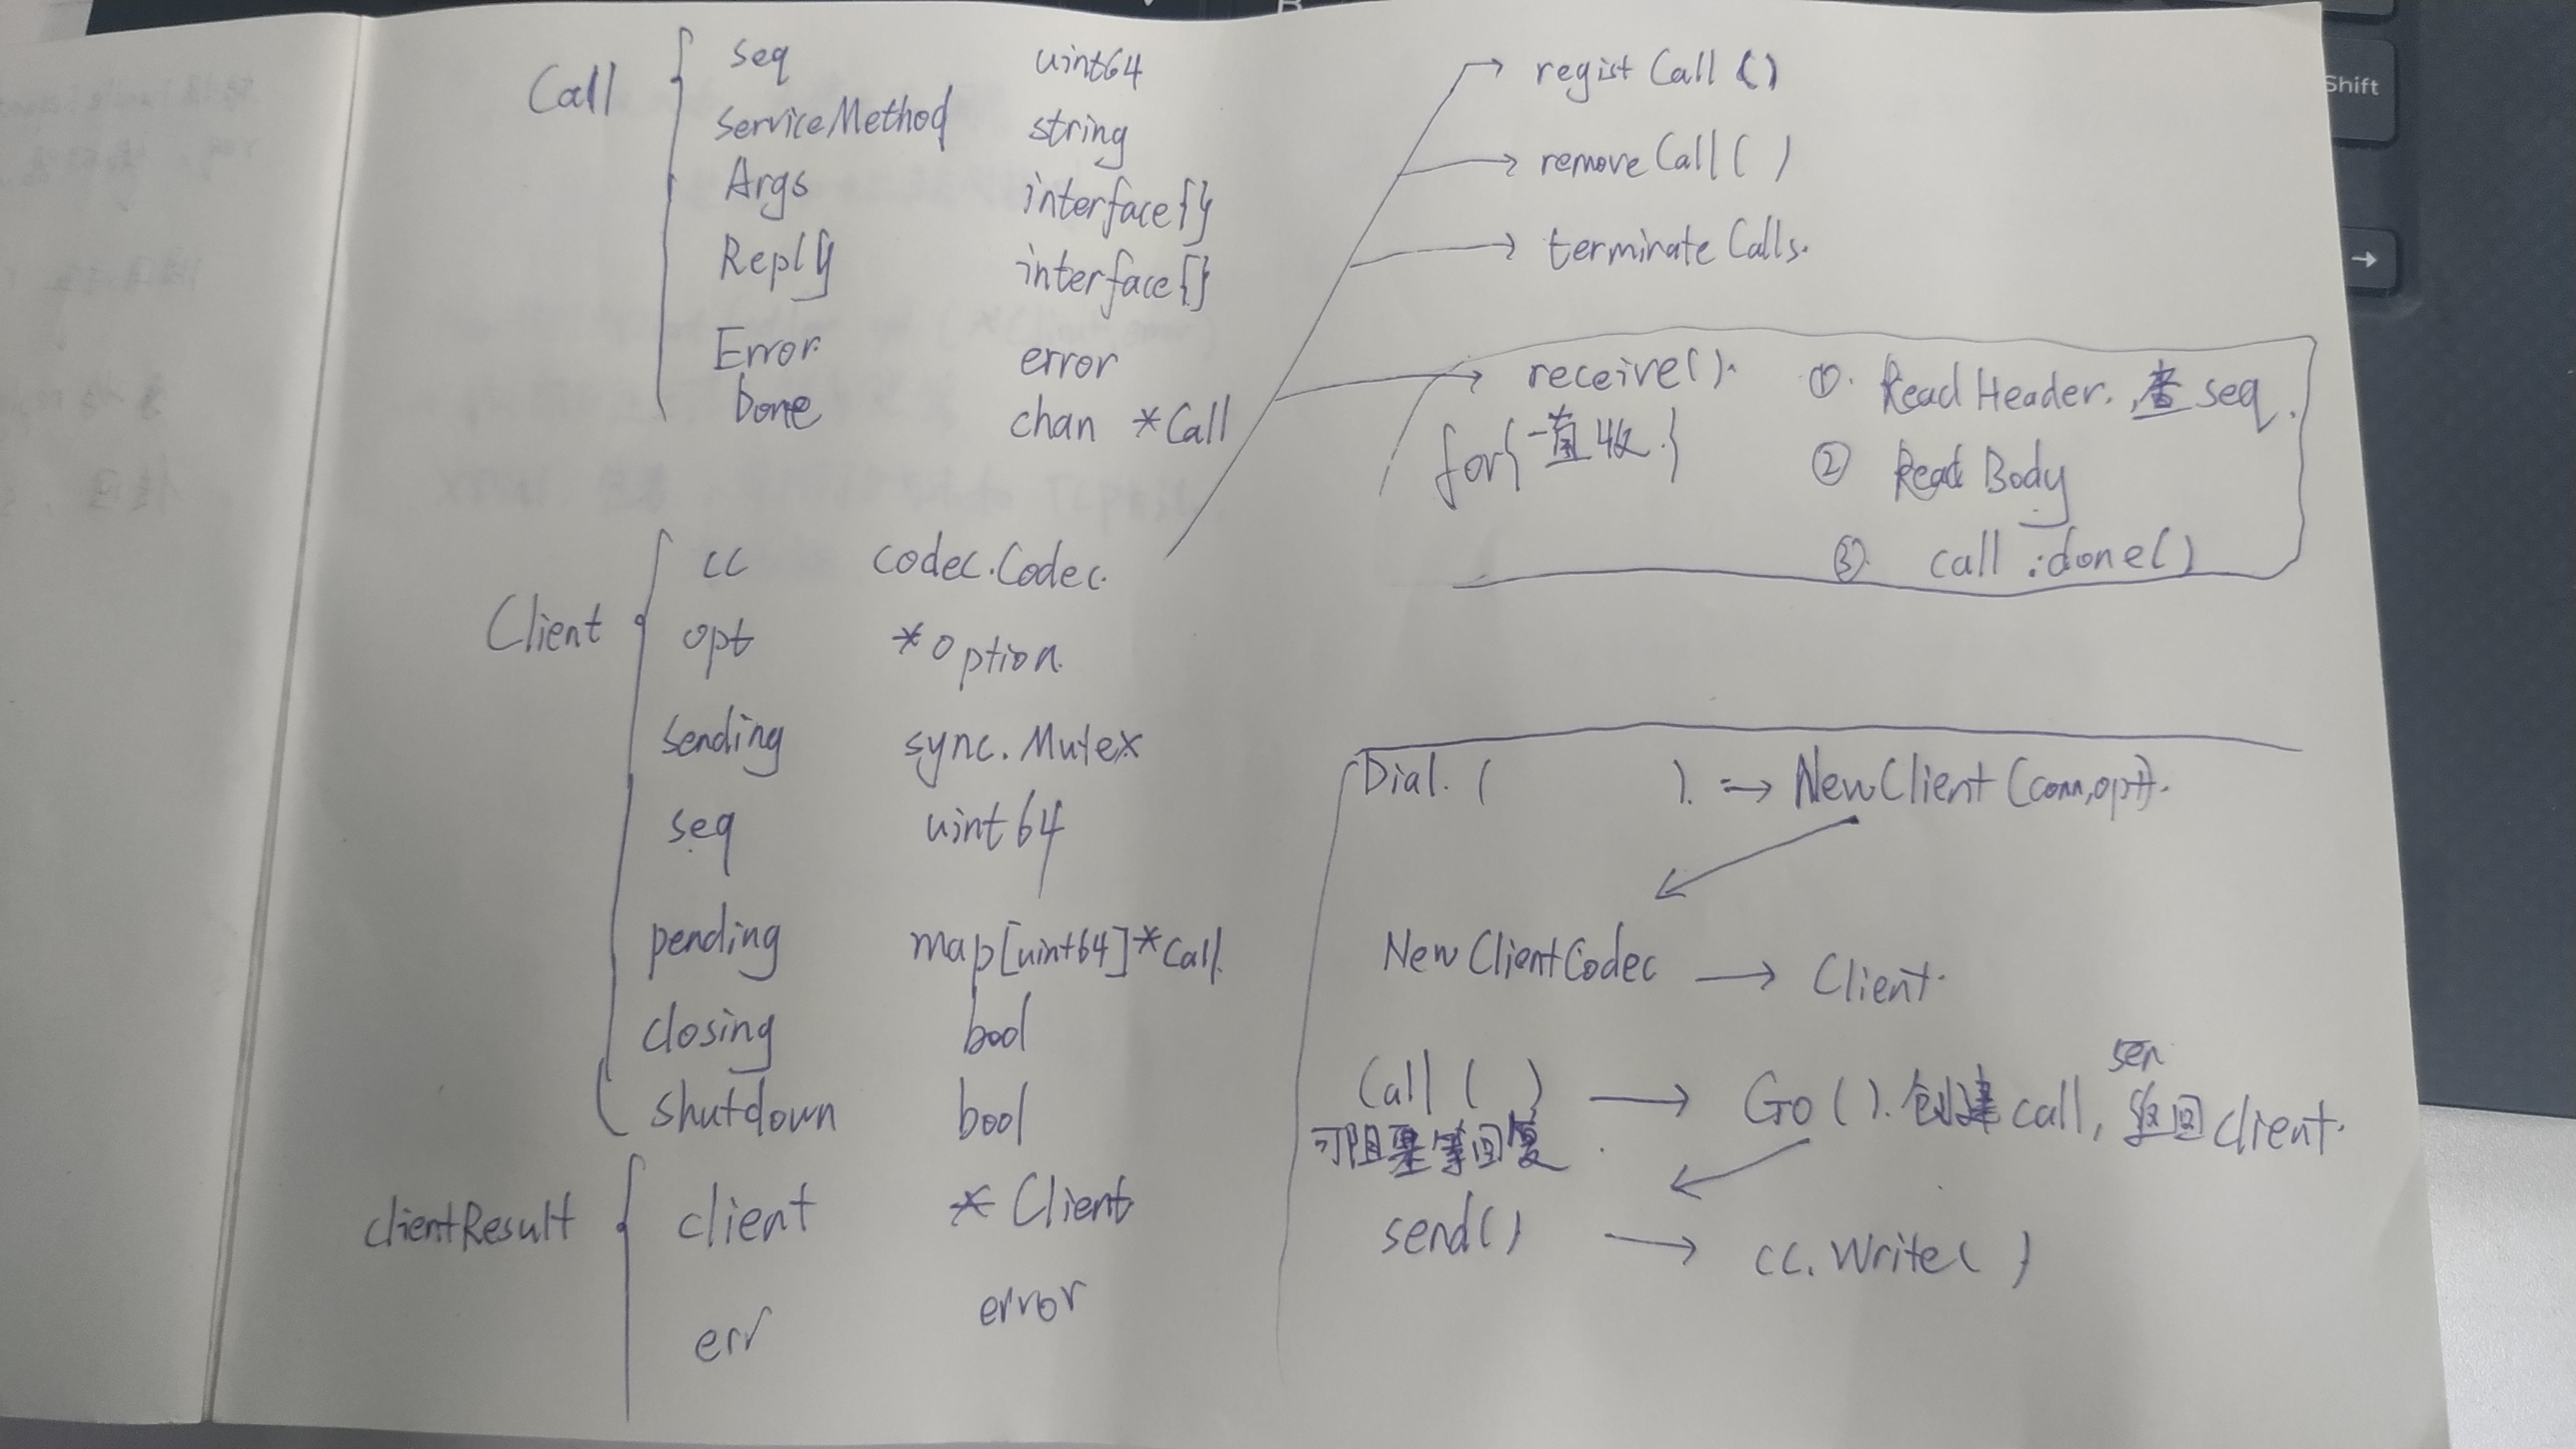 Call { seq uint64
ServiceMethod string
Args interface{}
Reply interface{}
Error error
Done chan *Call
Client { cc codec.Codec.
opt *option
sending sync.Mutex
seq uint64
pending map[uint64]*Call
closing bool
shutdown bool
clientResult { client *Client
err error
→ regist Call ()
→ remove Call ( )
→ terminate Calls.
→ receive(). ①. Read Header, 查 seq.
for{一直收.} ② Read Body
③. call.done()
Dial. ( ). → New Client (conn,opt).
New Client Codec → Client.
Call ( ) → Go ( ). 创建 call, 返回 Client.
sen
可阻塞等回复.
send() → cc. Write( )
Shift
→